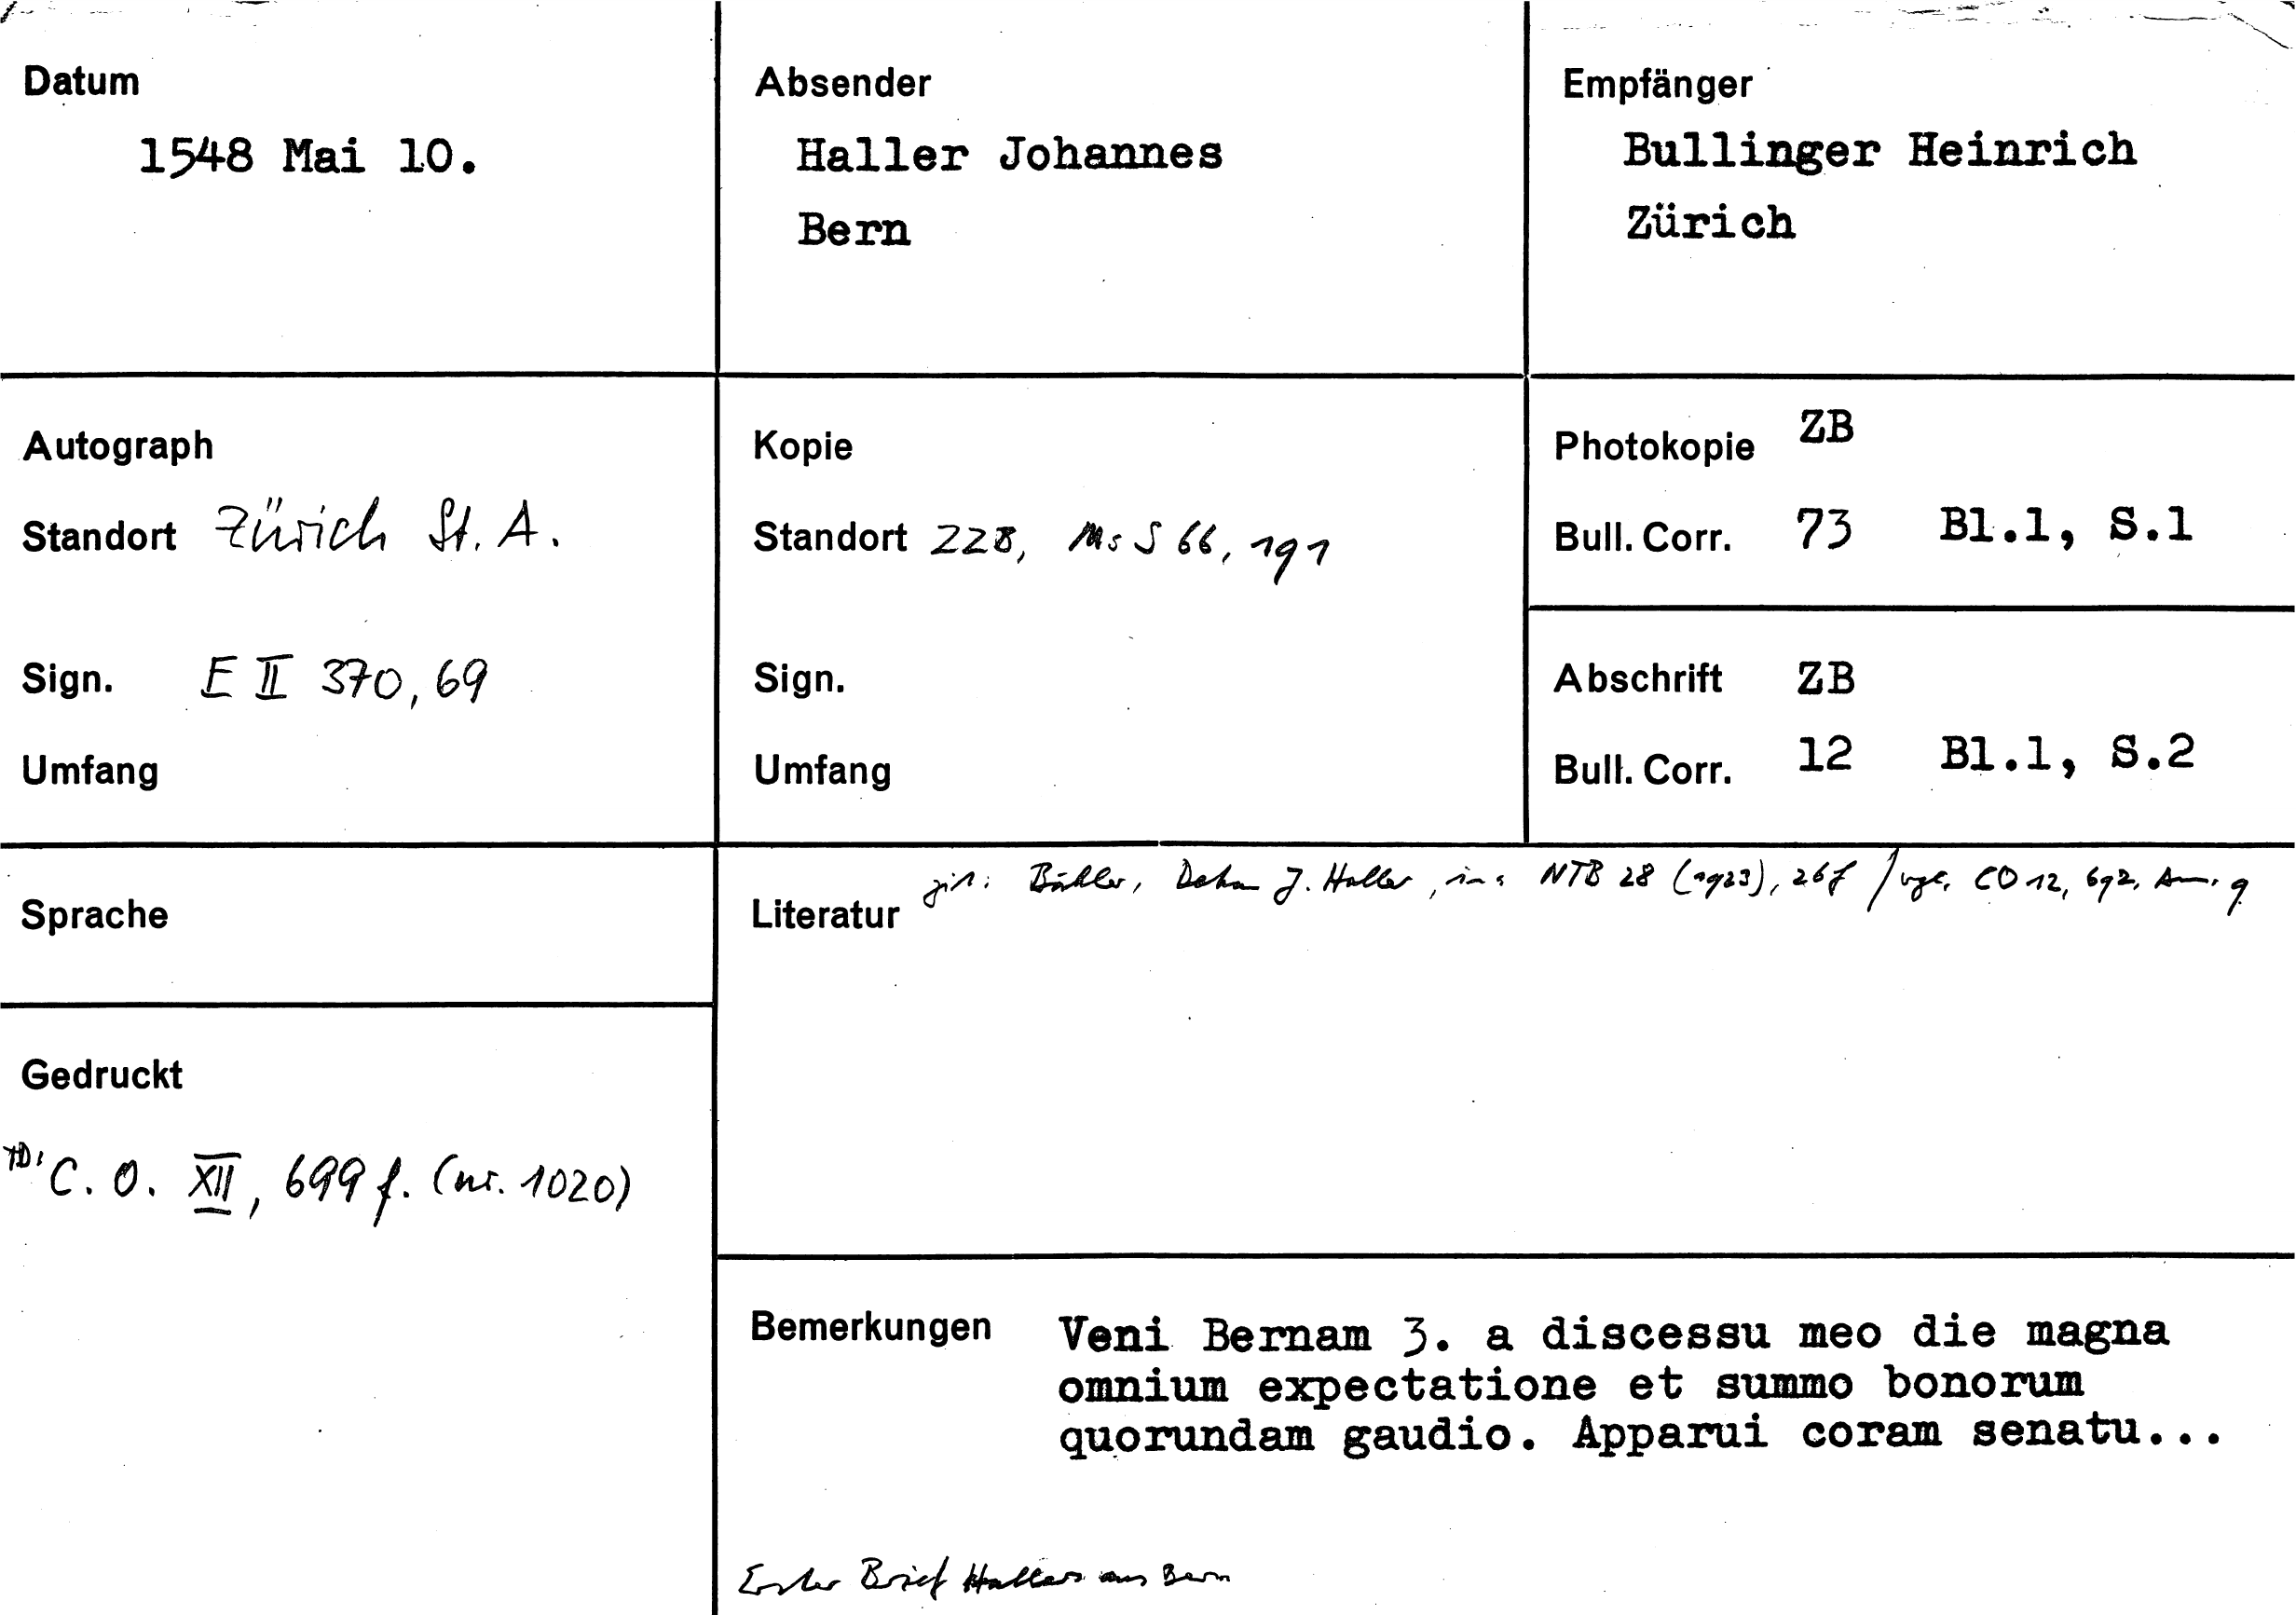 Datum
1548 Mai 10.
Absender
Haller Johannes
Bern
Empfänger
Bullinger Heinrich
Zürich
Autograph
Standort Zürich St. A.
Sign. E II 370, 69
Umfang
Kopie
Standort ZZB, Ms S 66, 191
Sign.
Umfang
Photokopie ZB
Bull. Corr. 73 Bl.1, S.1
Abschrift ZB
Bull. Corr. 12 Bl.1, S.2
Sprache
Literatur zit.: Bähler, Dekan J. Haller, in: NTB 28 (1923), 26f / vgl. CO 12, 692, Anm. 9
Gedruckt
TD: C. O. XII, 699 f. (nr. 1020)
Bemerkungen Veni Bernam 3. a discessu meo die magna
omnium expectatione et summo bonorum
quorundam gaudio. Apparui coram senatu...
Erster Brief Hallers aus Bern